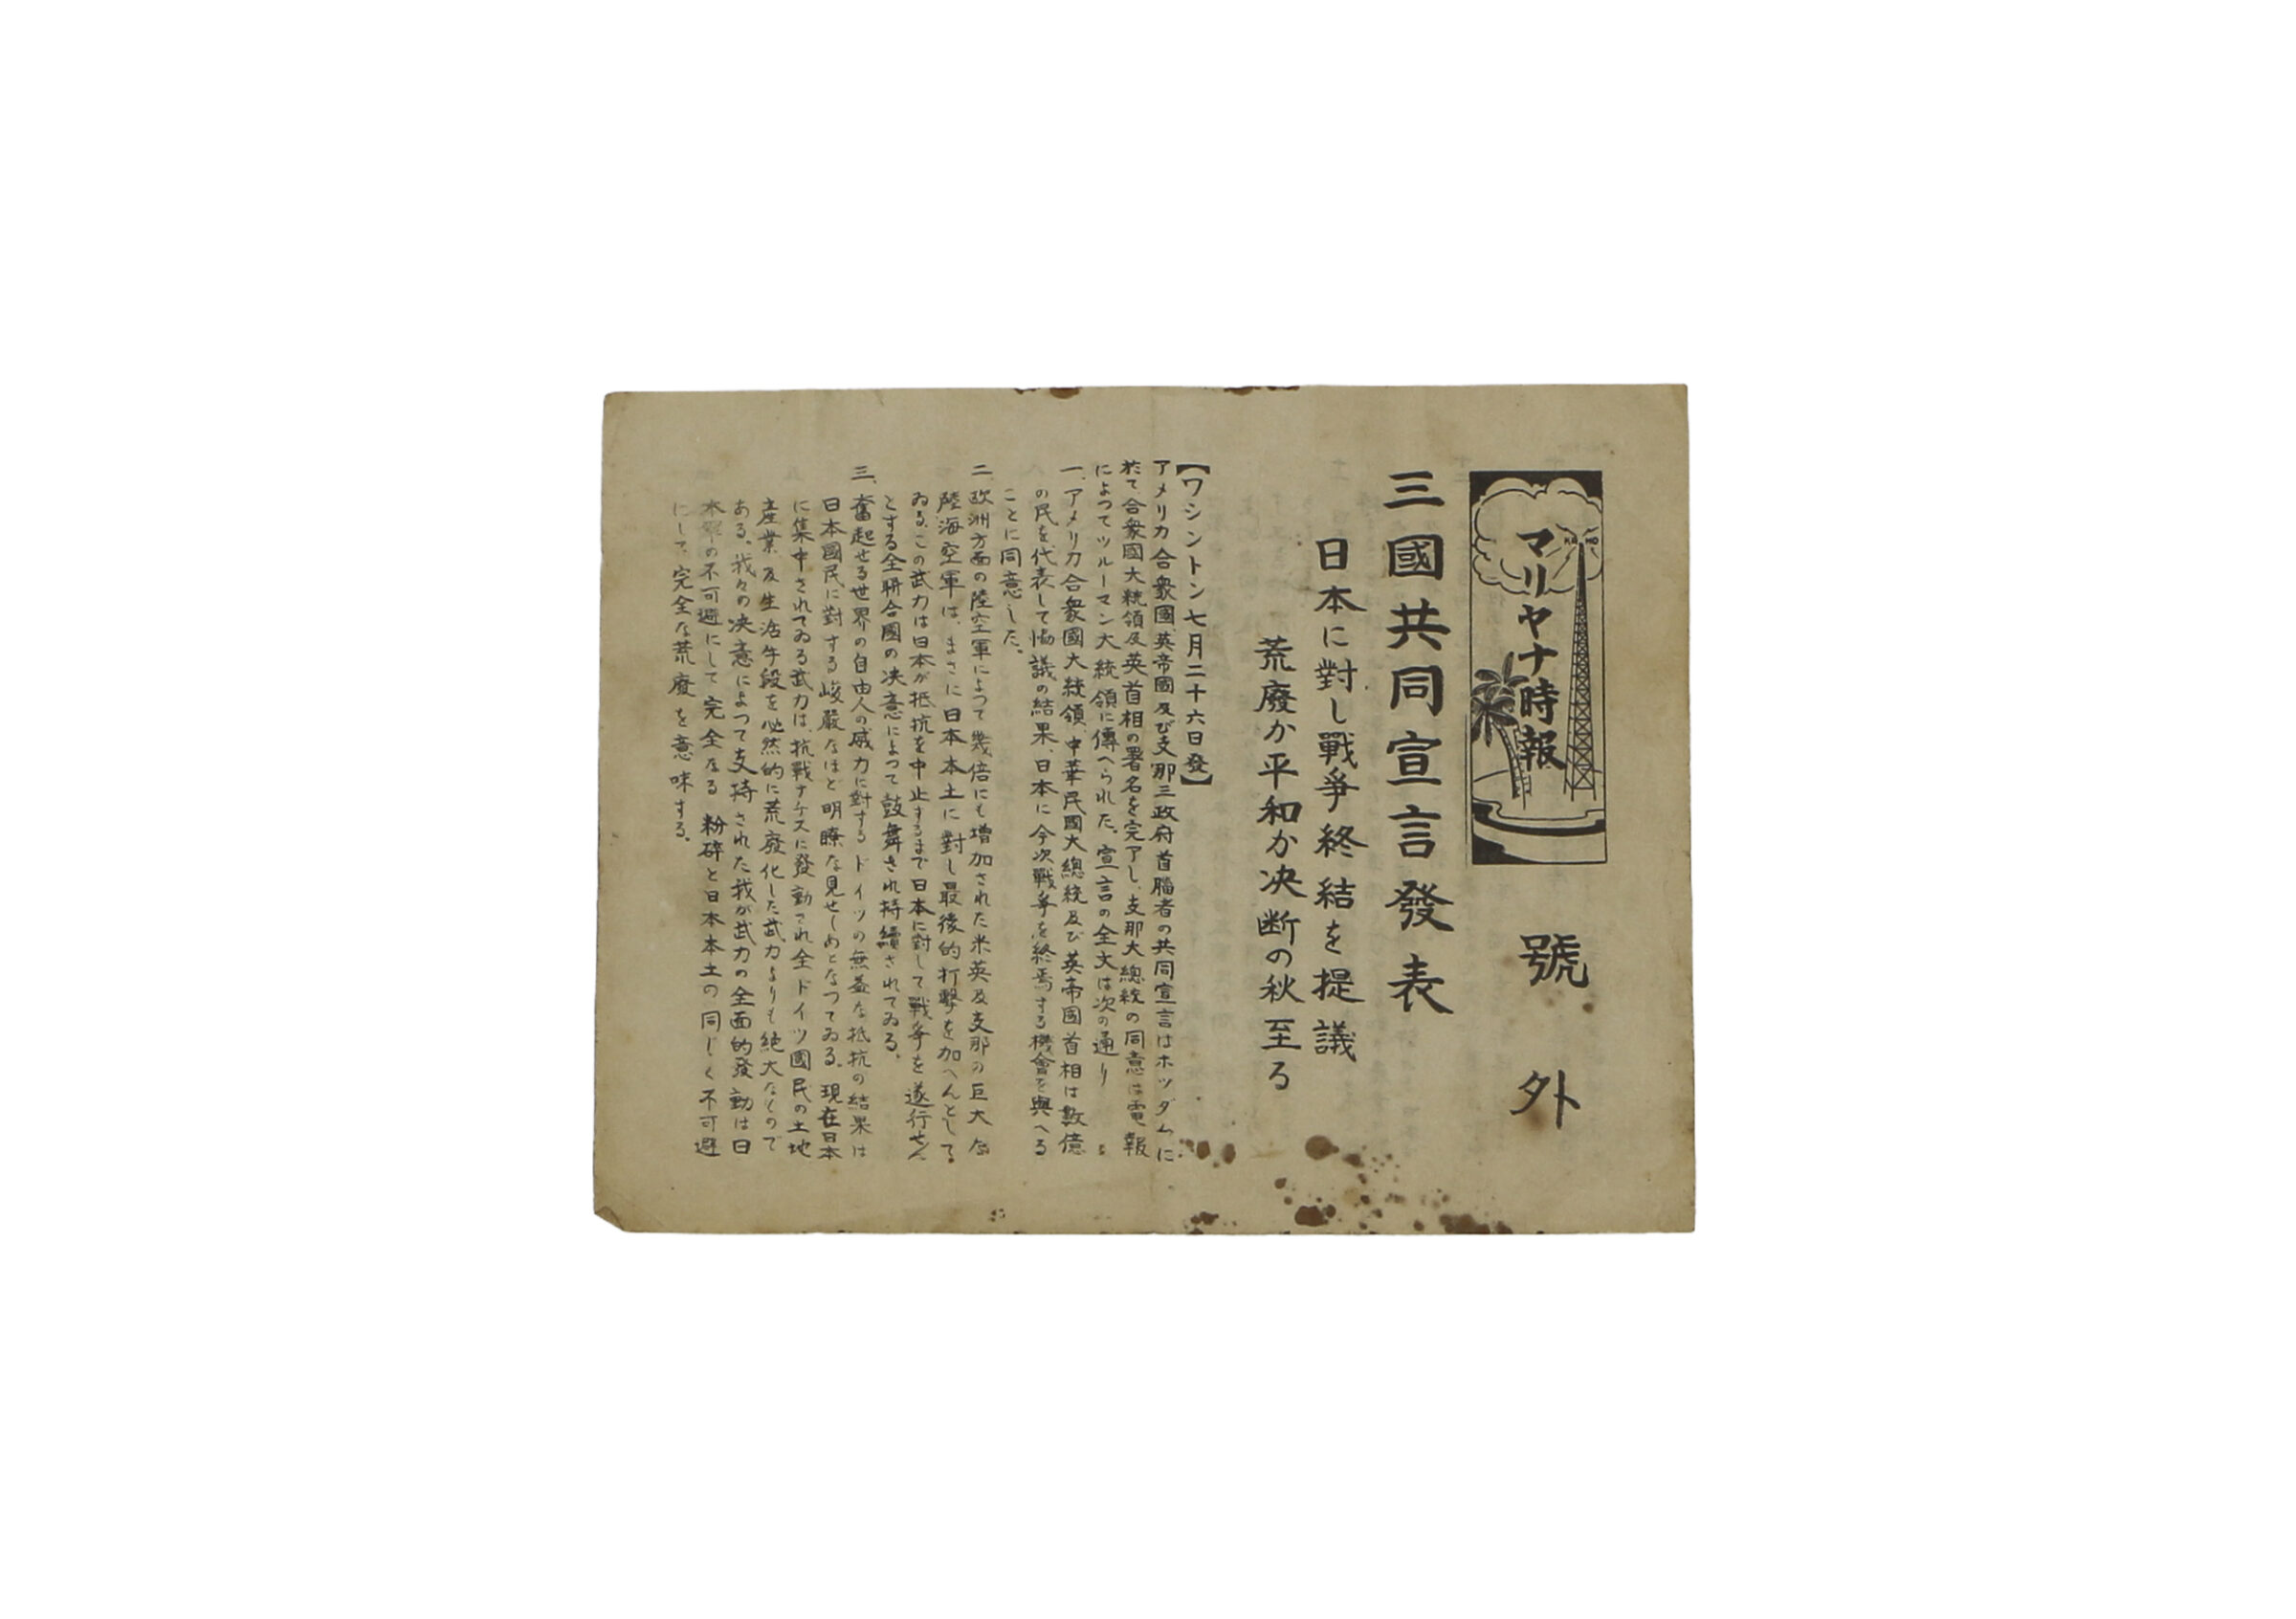 マリヤナ時報
號外
三國共同宣言發表
日本に對し戰爭終結を提議
荒廢か平和か决断の秋至る
【ワシントン七月二十六日發】
アメリカ合衆國、英帝國及び支那三政府首腦者の共同宣言はポツダムに
於て合衆國大統領及英首相の署名を完了し、支那大總統の同意は電報
によつてツルーマン大統領に傳へられた。宣言の全文は次の通り
一、アメリカ合衆國大統領、中華民國大總統及び英帝國首相は數億
の民を代表して協議の結果、日本に今次戰爭を終焉する機會を與へる
ことに同意した。
二、欧洲方面の陸空軍によつて幾倍にも增加された米英及支那の巨大な
陸海空軍は、まさに日本本土に對し最後的打擊を加へんとして
ゐる、この武力は日本が抵抗を中止するまで日本に對して戰爭を遂行せん
とする全聯合國の决意によつて鼓舞され持續されてゐる。
三、奮起せる世界の自由人の威力に對するドイツの無益な抵抗の結果は
日本國民に對する峻嚴なほど明瞭な見せしめとなつてゐる。現在日本
に集中されてゐる武力は、抗戰ナチスに發動され全ドイツ國民の土地
産業及生活手段を必然的に荒廢化した武力よりも絶大なもので
ある。我々の决意によつて支持された我が武力の全面的發動は日
本軍の不可避にして完全なる粉碎と日本本土の同じく不可避
にして完全な荒廢を意味する。